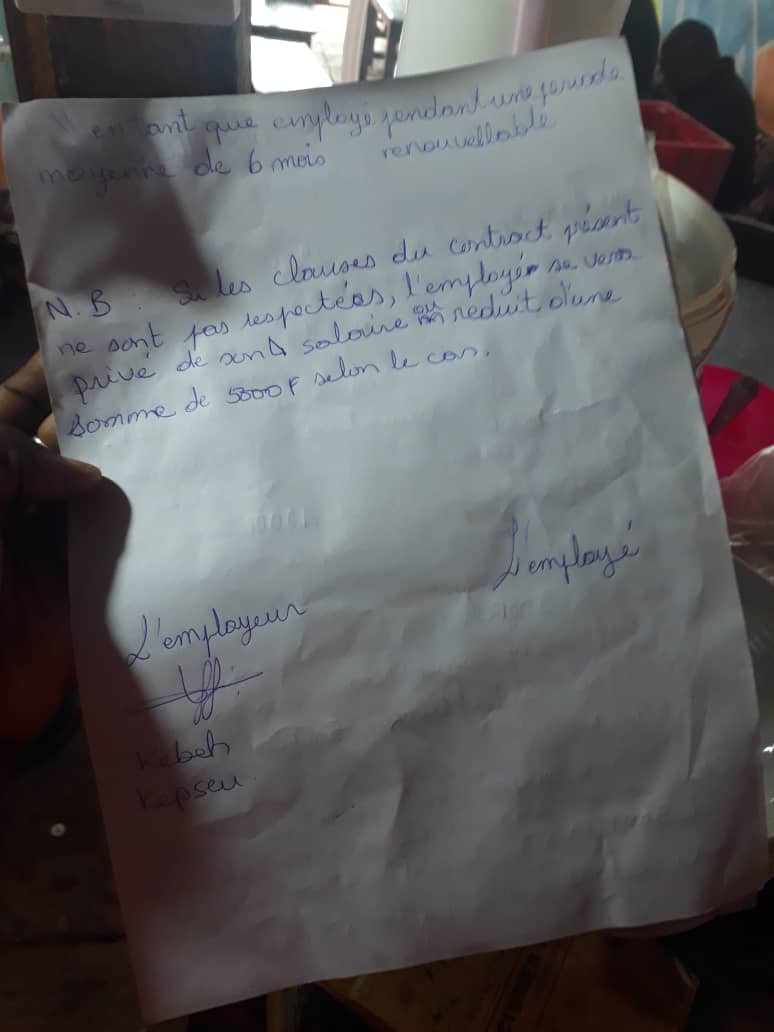 en tant que employé pendant une periode
moyenne de 6 mois renouvellable
N.B : Si les clauses du contract présent
ne sont pas respectées, l'employé se verra
privé de son salaire ou reduit d'une
somme de 5000F selon le cas.
L'employé
L'employeur
Kebeh
Kepseu